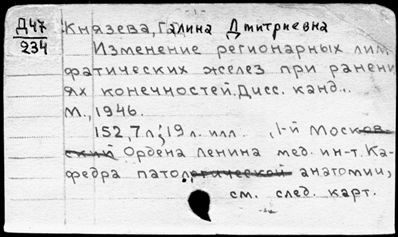 Д47
234
Князева, Галина Дмитриевна
Изменение регионарных лим
фатических желез при ранени
ях конечностей. Дисс. канд..
М., 1946.
152,7 л; 19 л. илл. , 1-й Москов
ский Ордена Ленина мед. ин-т. Ка-
федра патологической анатомии,
см. след. карт.